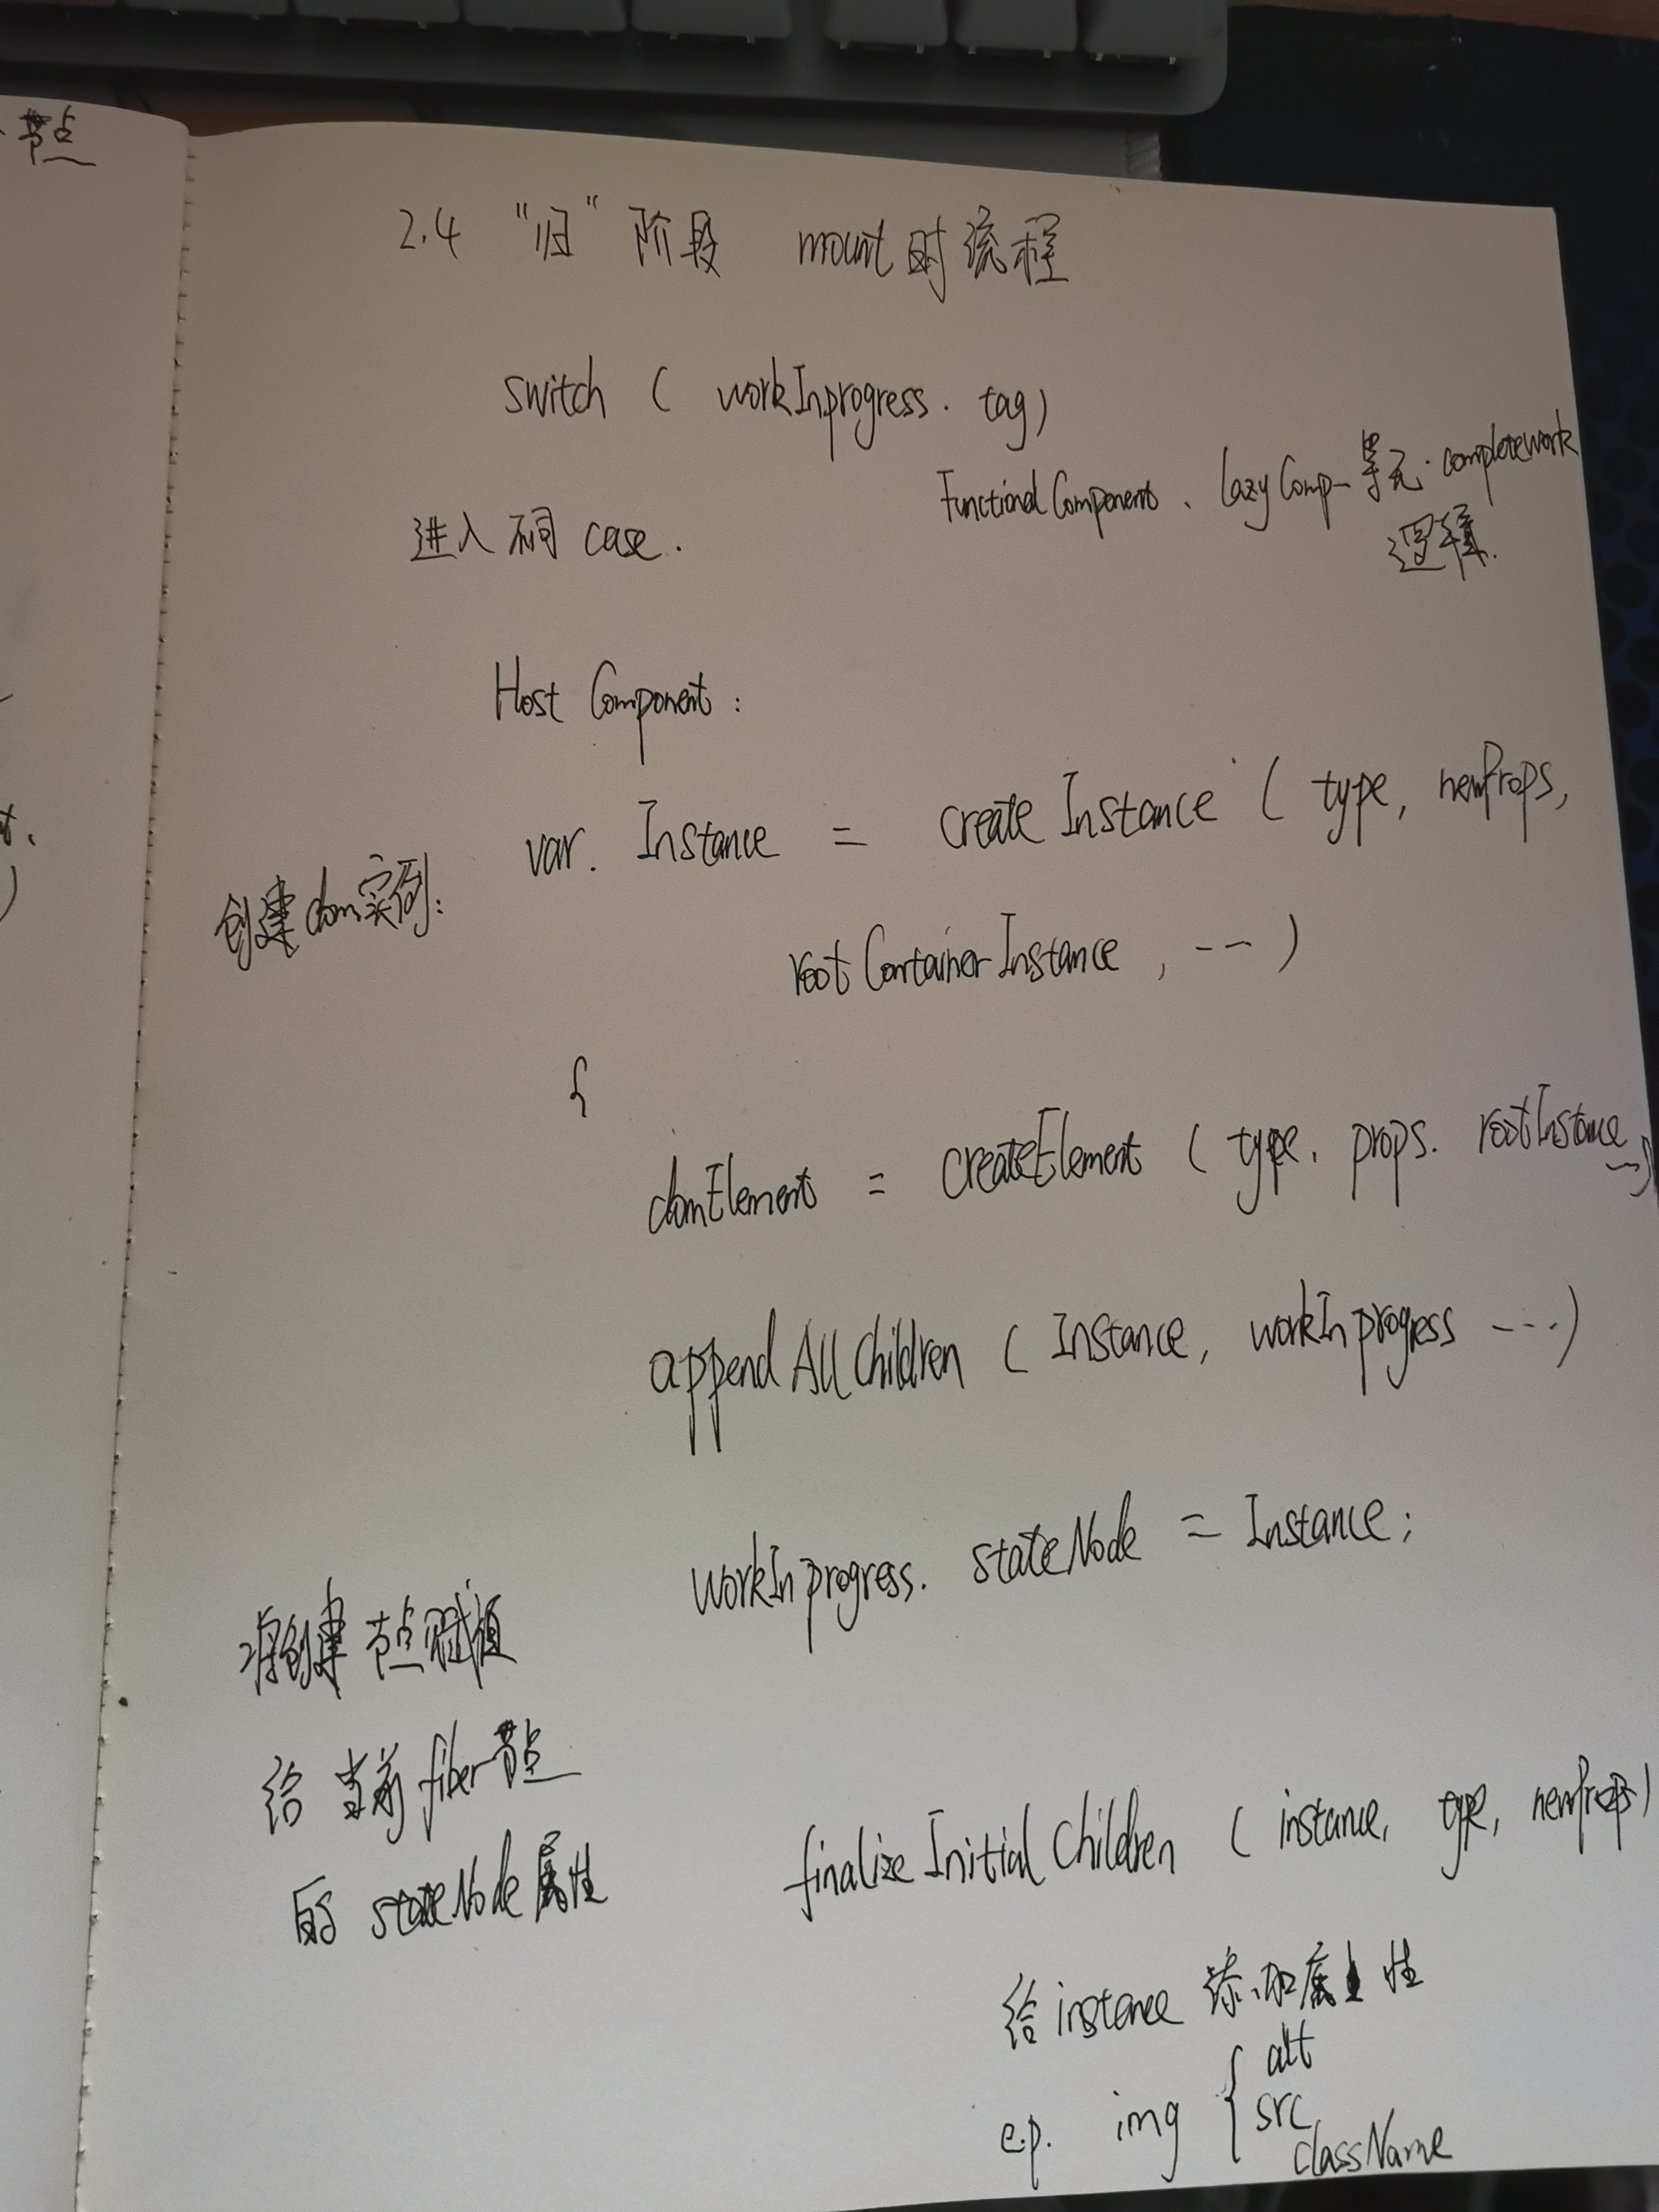 节点
2.4 "归" 阶段 mount时流程
switch ( workInprogress. tag)
FunctionalComponent、LazyComp- 等无 completework
逻辑.
进入不同 case.
Host Component :
var. Instance = create Instance ( type, newProps,
创建dom实例:
rootContainerInstance , --- )
{
domElement = createElement ( type, props. rootInstance )
append All Children ( Instance, workInprogress ---)
workInprogress. stateNode = Instance;
将创建 节点赋值
给 当前 fiber节点
的 stateNode属性
finalizeInitialChildren ( instance, type, newProps)
给instance 添加属性
e.p. img { alt
src
className